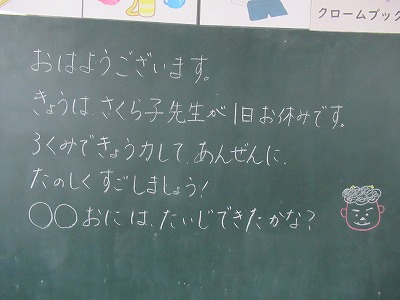 クロームブック
おはようございます。
きょうは、さくら子先生が1日お休みです。
ろくみできょう力して、あんぜんに、
たのしくすごしましょう!
○○おには、たいじできたかな?